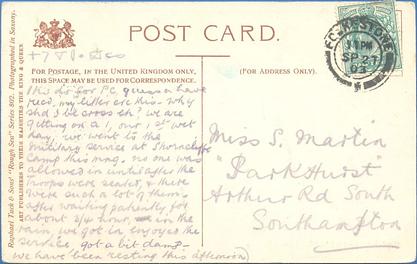 POST CARD.
FOR POSTAGE, IN THE UNITED KINGDOM ONLY,
THIS SPACE MAY BE USED FOR CORRESPONDENCE.
(FOR ADDRESS ONLY.)
FOLKESTONE
11 PM
SP 27
Raphael Tuck & Sons' "Rough Sea" Series 802. Photographed in Saxony.
ART PUBLISHERS TO THEIR MAJESTIES THE KING & QUEEN
This is for PC, guess u have
recd. my letter ere this. Why
shd I be cross eh? we are
getting on A1, our 1st wet
day. we went to the
military service at Shorncliffe
Camp this mng. no one was
allowed in until after the
troops were seated, & there
were such a lot of them,
after waiting patiently for
about 3/4 hour in the
rain, we got in, enjoyed the
service, got a bit damp.
we have been resting this afternoon)
Miss S. Martin
"Parkhurst"
Arthur Rd South
Southampton